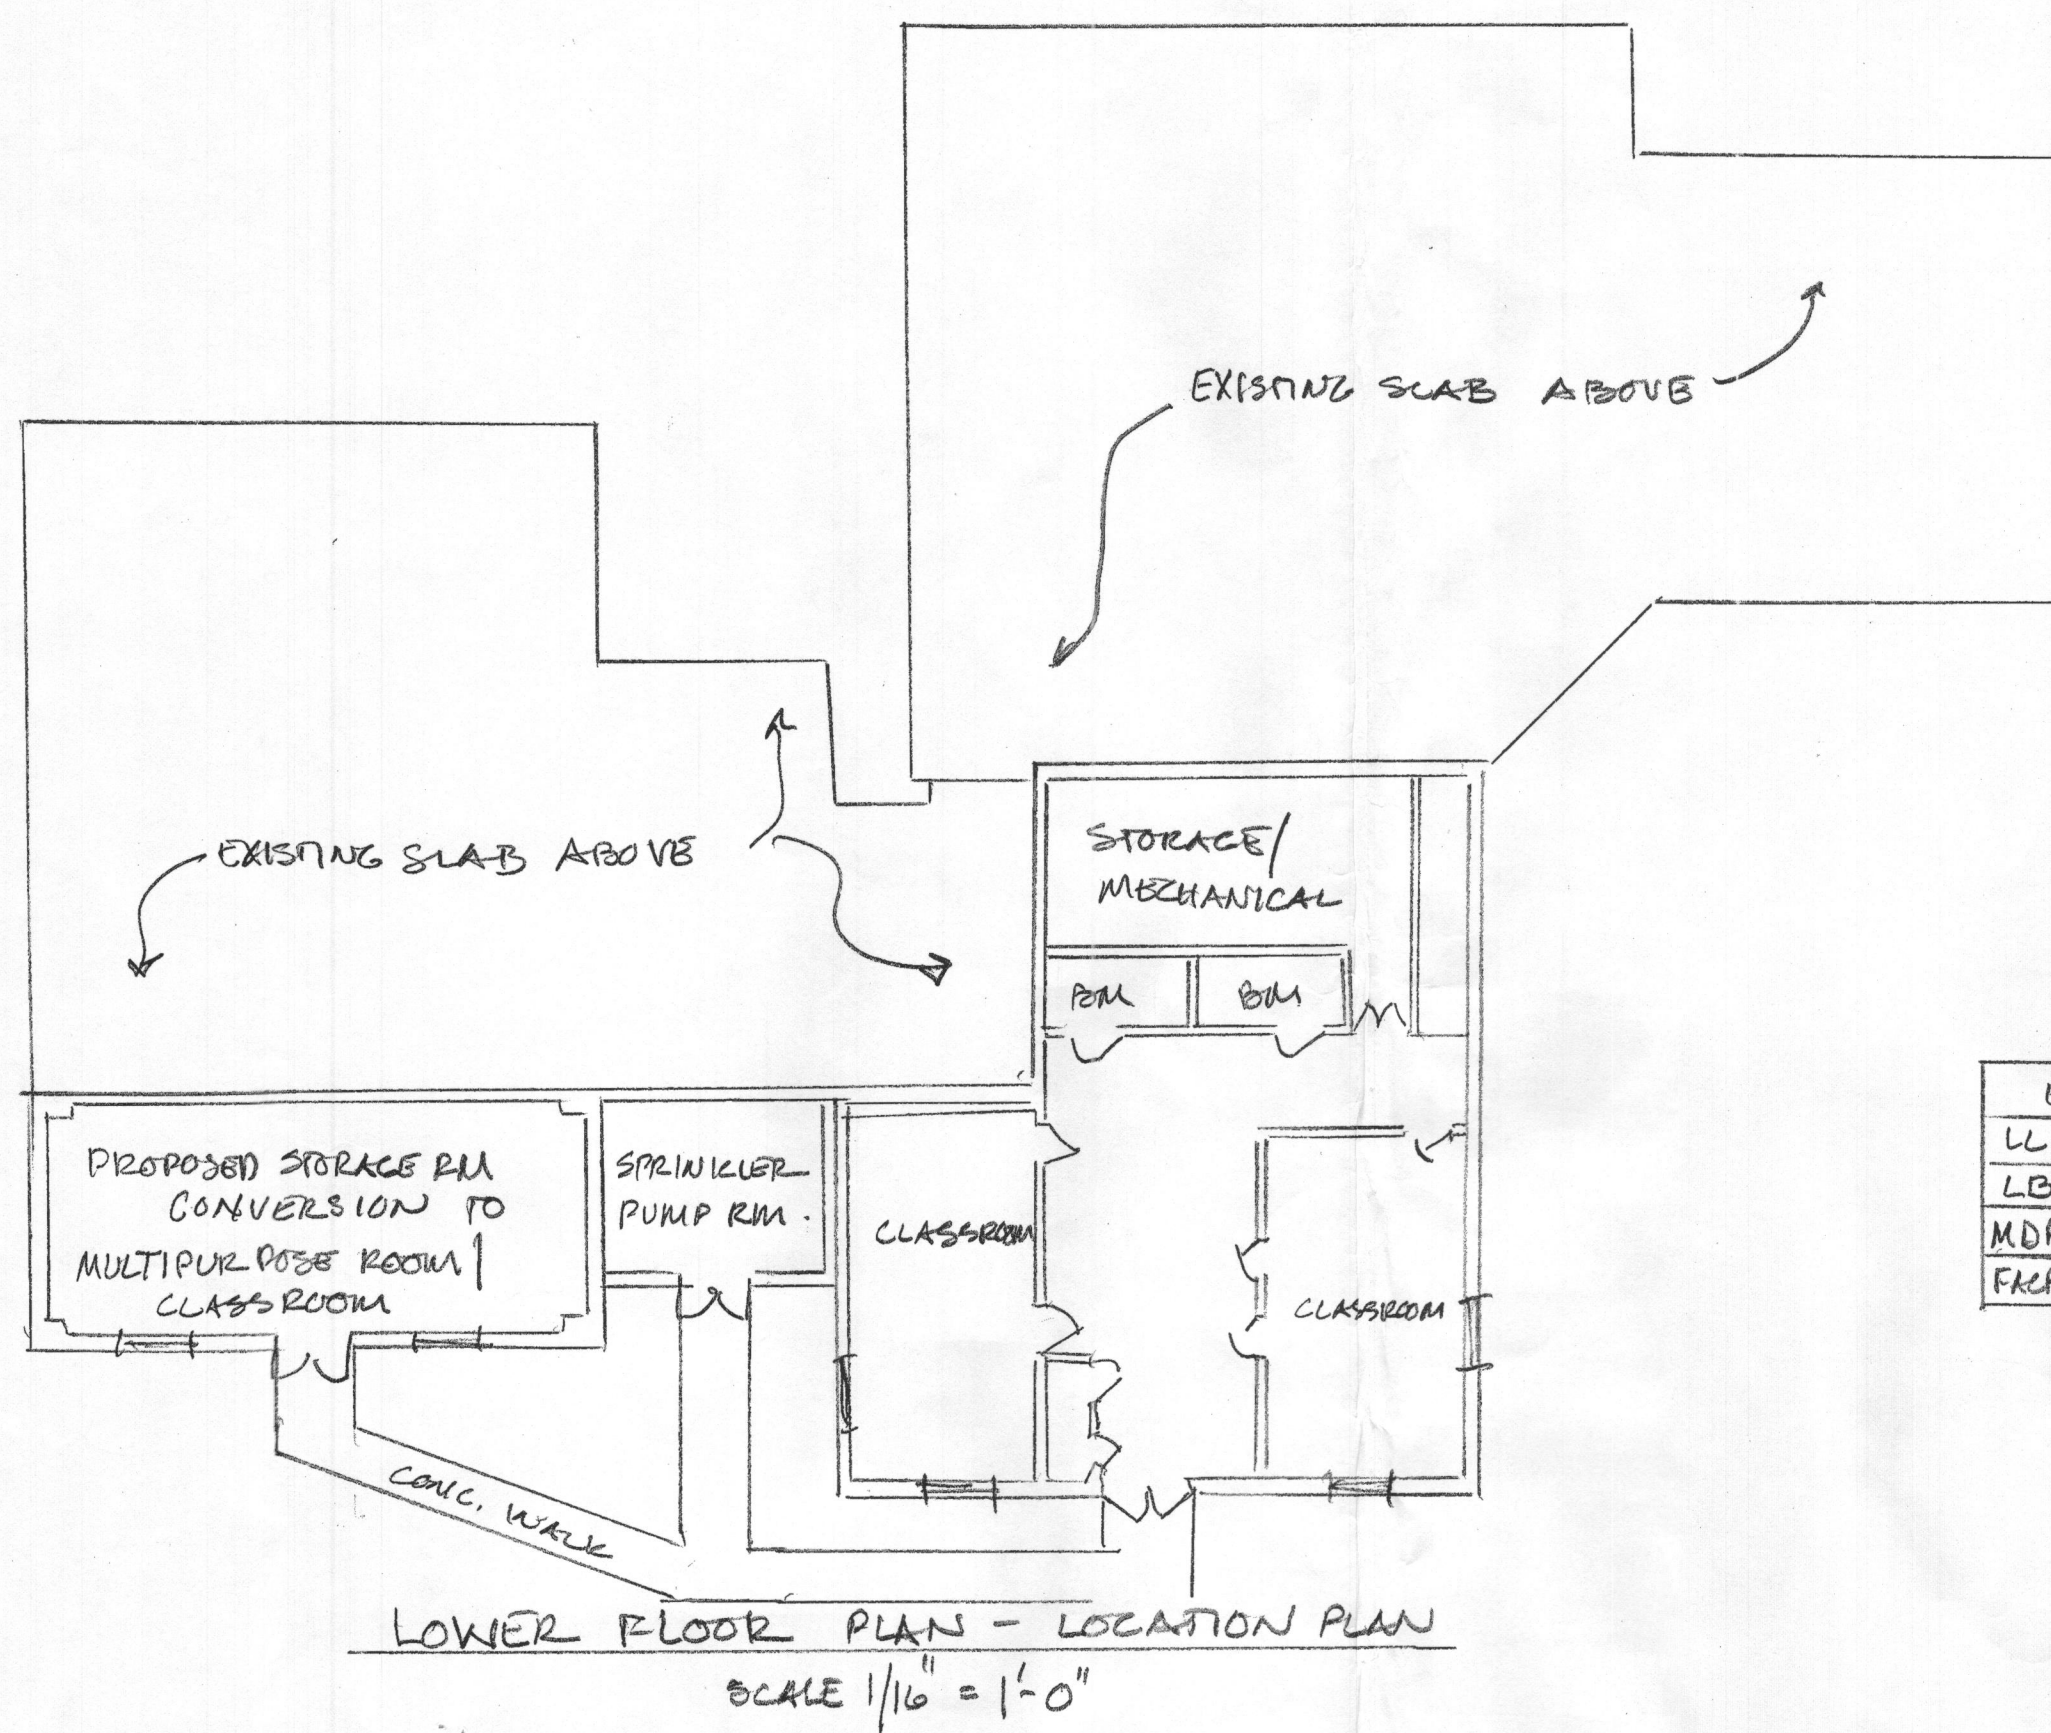 EXISTING SLAB ABOVE
EXISTING SLAB ABOVE
STORAGE/
MECHANICAL
BM
BM
PROPOSED STORAGE RM
CONVERSION TO
MULTIPURPOSE ROOM/
CLASSROOM
SPRINKLER
PUMP RM.
CLASSROOM
CLASSROOM
LL
LB
MDP
FACP
CONC. WALK
LOWER FLOOR PLAN - LOCATION PLAN
SCALE 1/16" = 1'-0"